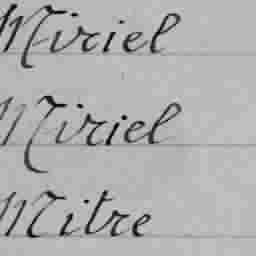 Miriel
Miriel
Mitre